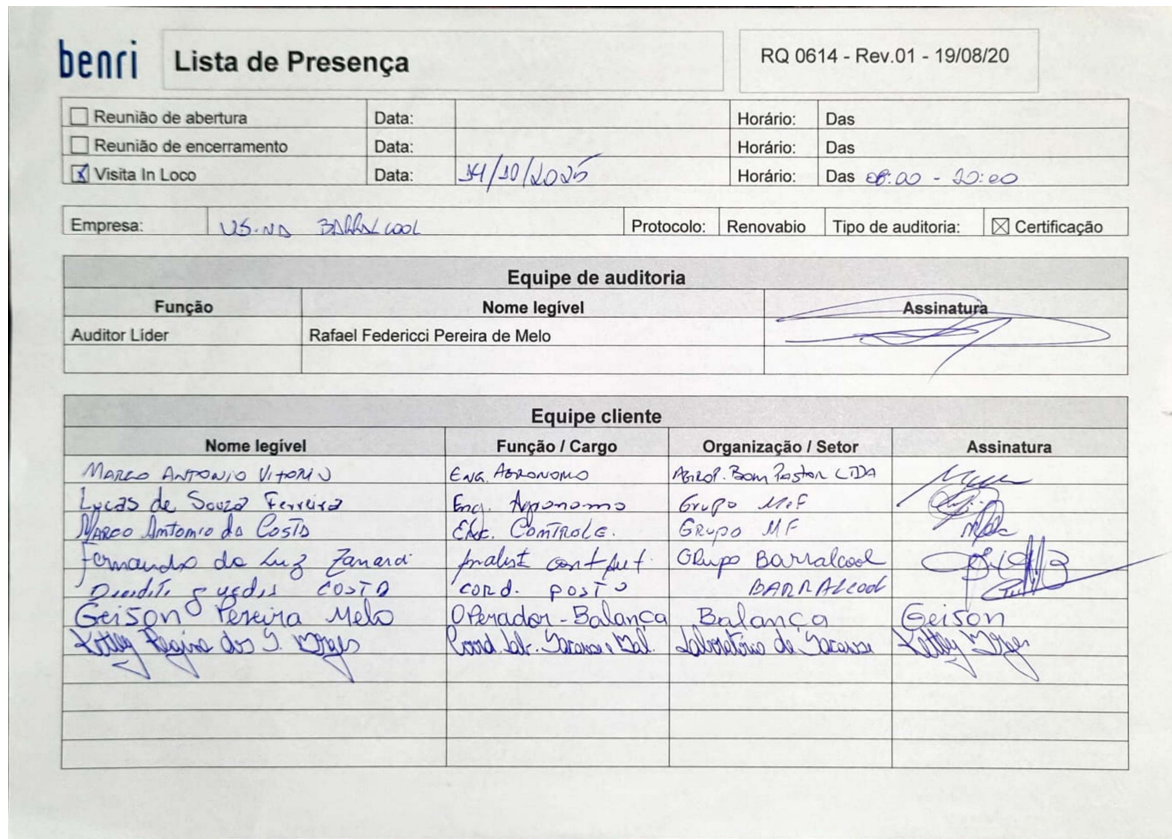 benri Lista de Presença RQ 0614 - Rev.01 - 19/08/20
Reunião de abertura Data: Horário: Das
Reunião de encerramento Data: Horário: Das
Visita In Loco Data: 14/10/2025 Horário: Das 08:00 - 20:00
Empresa: USINA BARRALCOOL Protocolo: Renovabio Tipo de auditoria: Certificação
Equipe de auditoria
Função Nome legível Assinatura
Auditor Lider Rafael Federicci Pereira de Melo
Equipe cliente
Nome legível Função / Cargo Organização / Setor Assinatura
MARCO ANTONIO VITORIO ENG. AGRONOMO AGROP. Bom Pastor LTDA
Lucas de Souza Ferreira Eng. Agronomo Grupo MF
MARCO Antonio da Costa CONTROLE. GRUPO MF
Fernando da Luz Zanardi Analist cont Aut. Grupo Barralcool
COSTA COORD. POSTO BARRALcool
Geison Pereira Melo Operador - Balança Balança Geison
Kettley Regina dos S. Borges Coord. Lab. Sacarose e Bal. Laboratório de Sacarose Kettley Borges